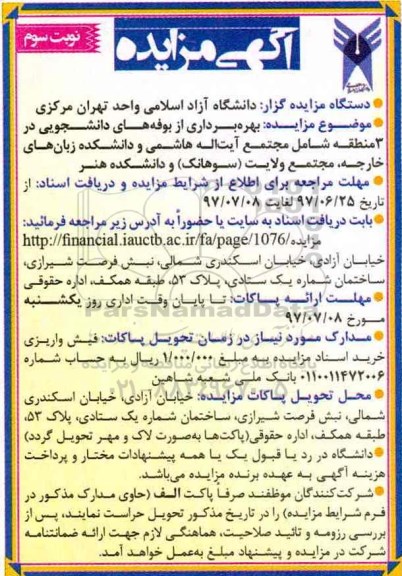 آگهی مزایده
نوبت سوم
دستگاه مزایده گزار: دانشگاه آزاد اسلامی واحد تهران مرکزی
موضوع مزایده: بهره‌برداری از بوفه‌های دانشجویی در
۳منطقه شامل مجتمع آیت‌اله هاشمی و دانشکده زبان‌های
خارجه، مجتمع ولایت (سوهانک) و دانشکده هنر
مهلت مراجعه برای اطلاع از شرایط مزایده و دریافت اسناد: از
تاریخ ۹۷/۰۶/۲۵ لغایت ۹۷/۰۷/۰۸
بابت دریافت اسناد به سایت یا حضوراً به آدرس زیر مراجعه فرمائید:
http://financial.iauctb.ac.ir/fa/page/1076/مزایده
خیابان آزادی، خیابان اسکندری شمالی، نبش فرصت شیرازی،
ساختمان شماره یک ستادی، پلاک ۵۳، طبقه همکف، اداره حقوقی
مهلت ارائه پاکات: تا پایان وقت اداری روز یکشنبه
مورخ ۹۷/۰۷/۰۸
ParsNamadData
مدارک مورد نیاز در زمان تحویل پاکات: فیش واریزی
خرید اسناد مزایده به مبلغ ۱/۰۰۰/۰۰۰ ریال به حساب شماره
۰۱۱۰۰۱۱۴۷۲۰۰۶ بانک ملی شعبه شاهین
محل تحویل پاکات مزایده: خیابان آزادی، خیابان اسکندری
شمالی، نبش فرصت شیرازی، ساختمان شماره یک ستادی، پلاک ۵۳،
طبقه همکف، اداره حقوقی(پاکت‌ها به‌صورت لاک و مهر تحویل گردد)
دانشگاه در رد یا قبول یک یا همه پیشنهادات مختار و پرداخت
هزینه آگهی به عهده برنده مزایده می‌باشد.
شرکت‌کنندگان موظفند صرفاً پاکت الف (حاوی مدارک مذکور در
فرم شرایط مزایده) را در تاریخ مذکور تحویل حراست نمایند، پس از
بررسی رزومه و تائید صلاحیت، هماهنگی لازم جهت ارائه ضمانتنامه
شرکت در مزایده و پیشنهاد مبلغ به‌عمل خواهد آمد.